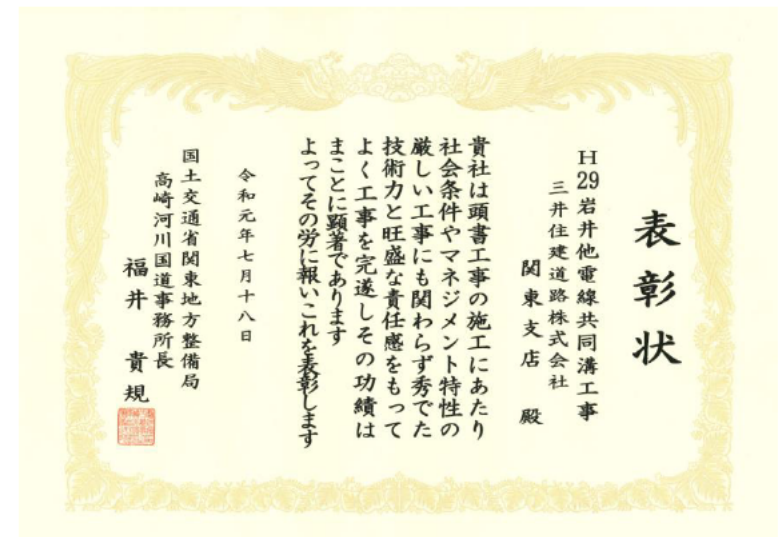 表彰状
H29岩井他電線共同溝工事
三井住建道路株式会社
関東支店 殿
貴社は頭書工事の施工にあたり
社会条件やマネジメント特性の
厳しい工事にも関わらず秀でた
技術力と旺盛な責任感をもって
よく工事を完遂しその功績は
まことに顕著であります
よってその労に報いこれを表彰します
令和元年七月十八日
国土交通省関東地方整備局
高崎河川国道事務所長
福井 貴規